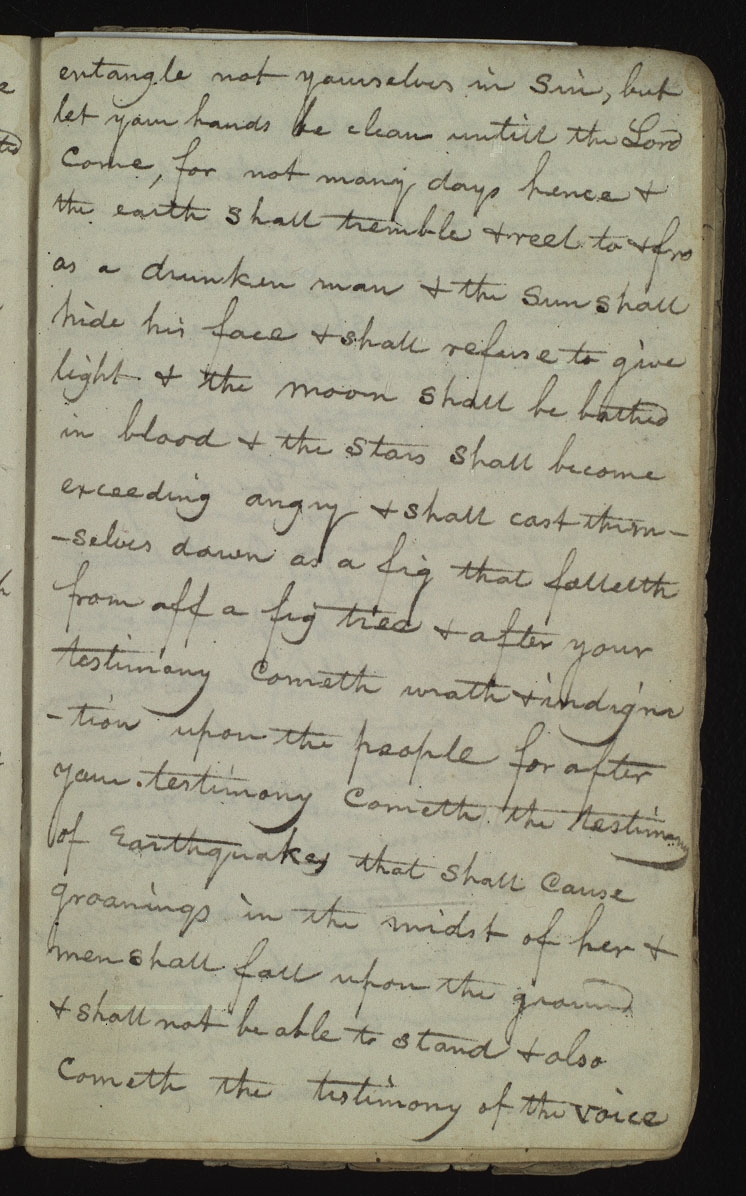 entangle not yourselves in Sin, but
let your hands be clean untill the Lord
Come, for not many days hence &
the earth shall tremble & reel to & fro
as a drunken man & the Sun shall
hide his face & shall refuse to give
light & the moon shall be bathed
in blood & the Stars shall become
exceeding angry & shall cast them-
-selves down as a fig that falleth
from off a fig tree & after your
testimony Cometh wrath & indigna
-tion upon the people for after
your testimony Cometh the testimony
of Earthquakes that shall Cause
groanings in the midst of her &
men shall fall upon the ground
& shall not be able to stand & also
Cometh the testimony of the voice